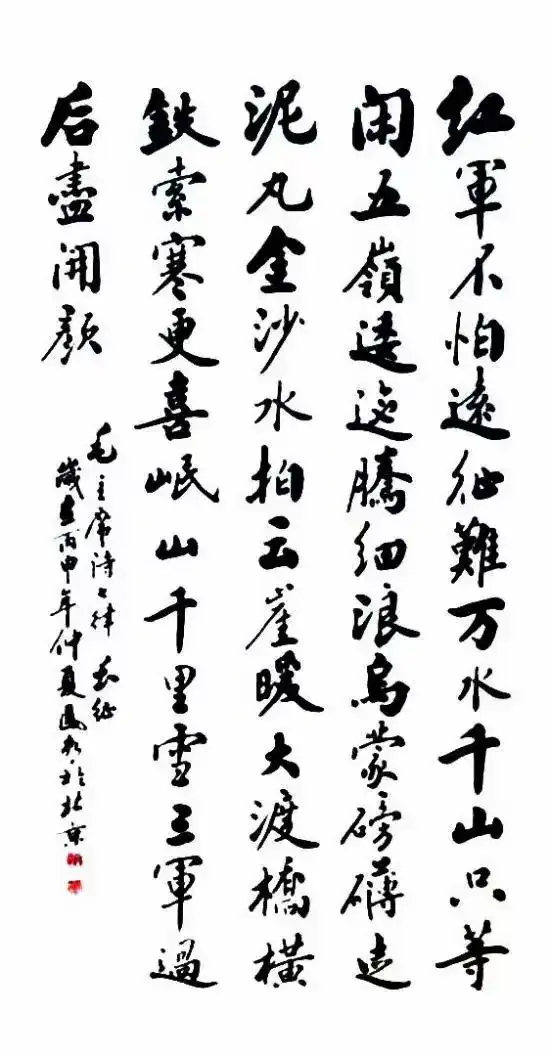 红軍不怕遠征難万水千山只等
闲五嶺逶迤騰细浪烏蒙磅礴走
泥丸金沙水拍云崖暖大渡橋橫
鉄索寒更喜岷山千里雪三軍過
后盡開顏
毛主席詩七律 长征
歲在丙申年仲夏於北京